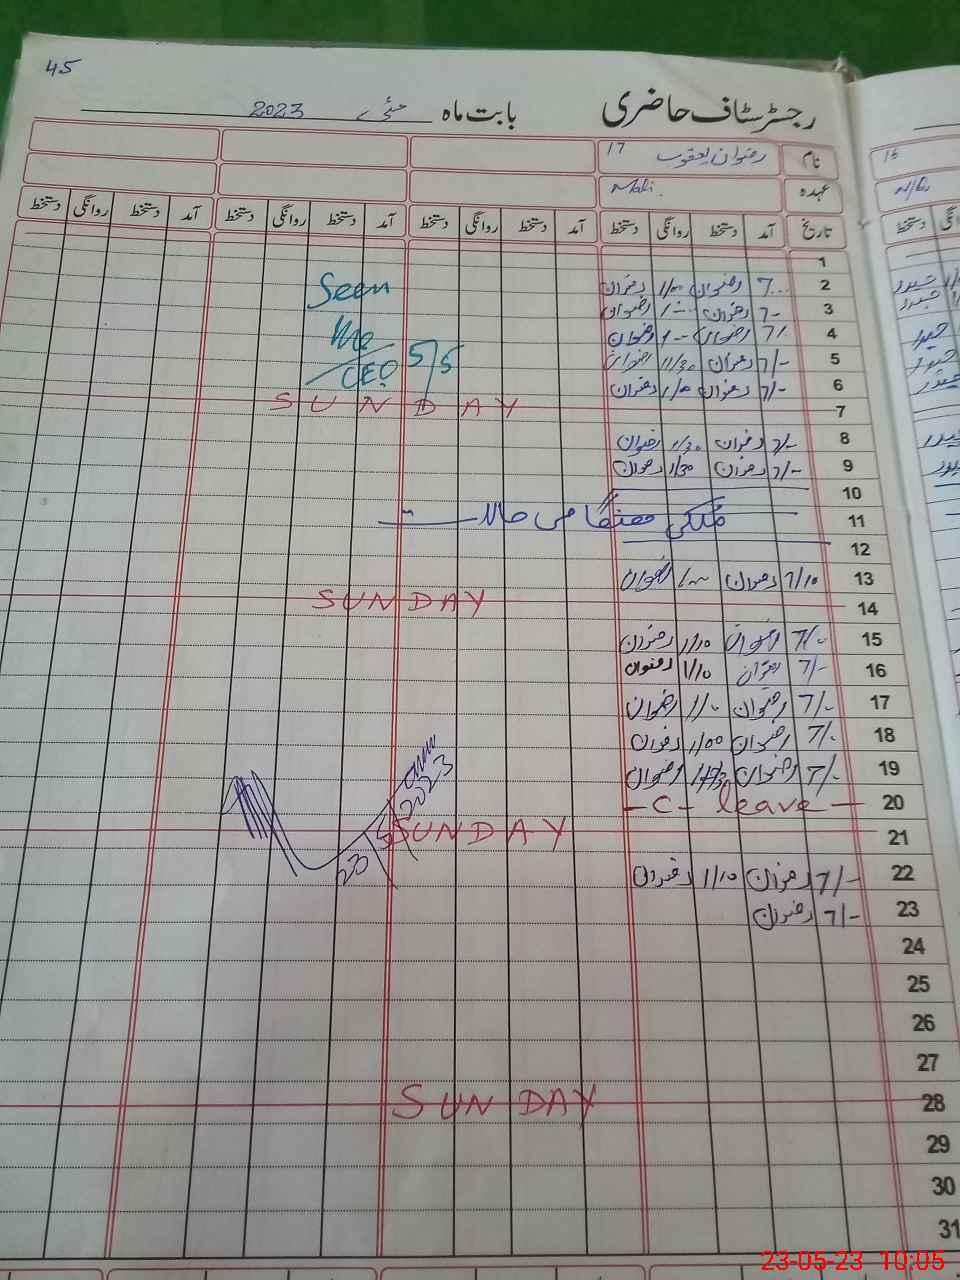 45
رجسٹر سٹاف حاضری بابت ماہ مئی 2023
نام 17 رضوان یعقوب
عہدہ Mali.
تاریخ آمد دستخط روانگی دستخط آمد دستخط روانگی دستخط آمد دستخط روانگی دستخط
1
2 7 رضوان 1/00 رضوان
Seen
3 7/- رضوان رضوان
4 7/- رضوان رضوان
Me
5 7/- رضوان 11/30 رضوان
CEO 5/5
6 7/- رضوان رضوان
7 SUNDAY
8 7/- رضوان 1/30 رضوان
9 7/- رضوان 1/30 رضوان
10
11 ملکی ہنگامی حالات
12
13 7/10 رضوان رضوان
14 SUNDAY
15 7/- رضوان 1/10 رضوان
16 7/- رضوان 1/10 رضوان
17 7/- رضوان 1/- رضوان
18 7/- رضوان 1/00 رضوان
19 7/- رضوان رضوان
20 - C - leave -
2023
21 SUNDAY
23
22 7/- رضوان 1/10 رضوان
23 7/- رضوان
24
25
26
27
28 SUNDAY
29
30
31
16
دستخط
حیدر
حیدر
حیدر
حیدر
حیدر
حیدر
حیدر
23-05-23 10:05